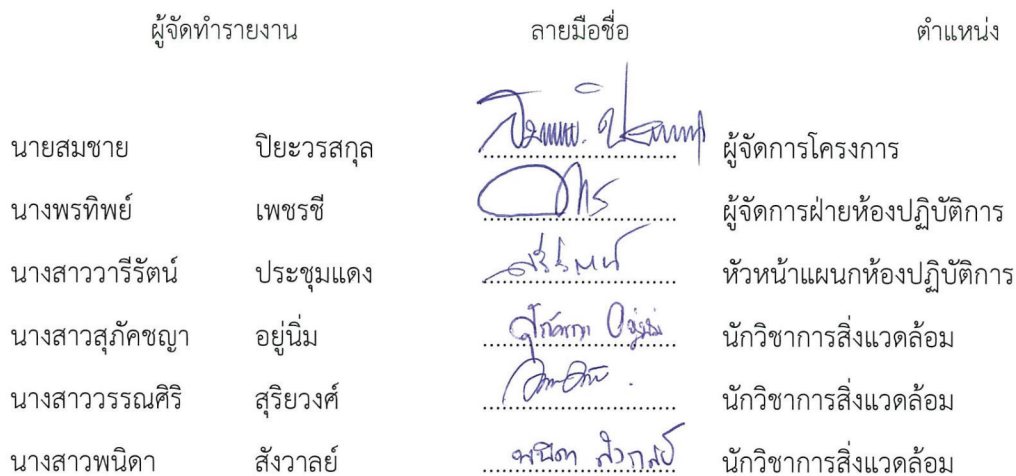 ผู้จัดทำรายงาน ลายมือชื่อ ตำแหน่ง
นายสมชาย ปิยะวรสกุล ผู้จัดการโครงการ
นางพรทิพย์ เพชรชี ผู้จัดการฝ่ายห้องปฏิบัติการ
นางสาววารีรัตน์ ประชุมแดง หัวหน้าแผนกห้องปฏิบัติการ
นางสาวสุภัคชญา อยู่นิ่ม นักวิชาการสิ่งแวดล้อม
นางสาววรรณศิริ สุริยวงศ์ นักวิชาการสิ่งแวดล้อม
นางสาวพนิดา สังวาลย์ พนิดา สังวาลย์ นักวิชาการสิ่งแวดล้อม